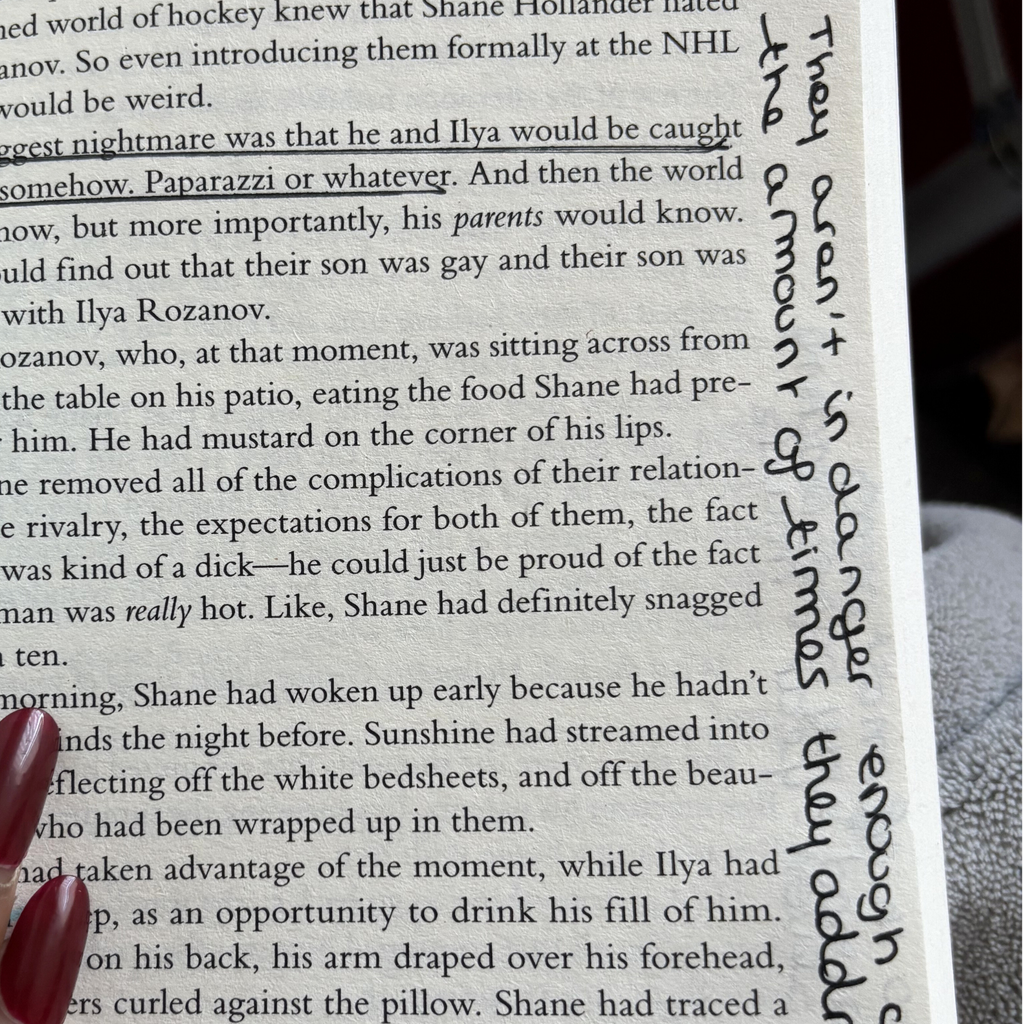 world of hockey knew that Shane Hollander hated
So even introducing them formally at the NHL
would be weird.
nightmare was that he and Ilya would be caught
somehow. Paparazzi or whatever. And then the world
but more importantly, his parents would know.
find out that their son was gay and their son was
with Ilya Rozanov.
who, at that moment, was sitting across from
the table on his patio, eating the food Shane had pre-
him. He had mustard on the corner of his lips.
removed all of the complications of their relation-
rivalry, the expectations for both of them, the fact
was kind of a dick—he could just be proud of the fact
man was really hot. Like, Shane had definitely snagged
ten.
morning, Shane had woken up early because he hadn't
the night before. Sunshine had streamed into
off the white bedsheets, and off the beau-
who had been wrapped up in them.
had taken advantage of the moment, while Ilya had
as an opportunity to drink his fill of him.
on his back, his arm draped over his forehead,
curled against the pillow. Shane had traced a
They aren't in danger enough
the amount of times they